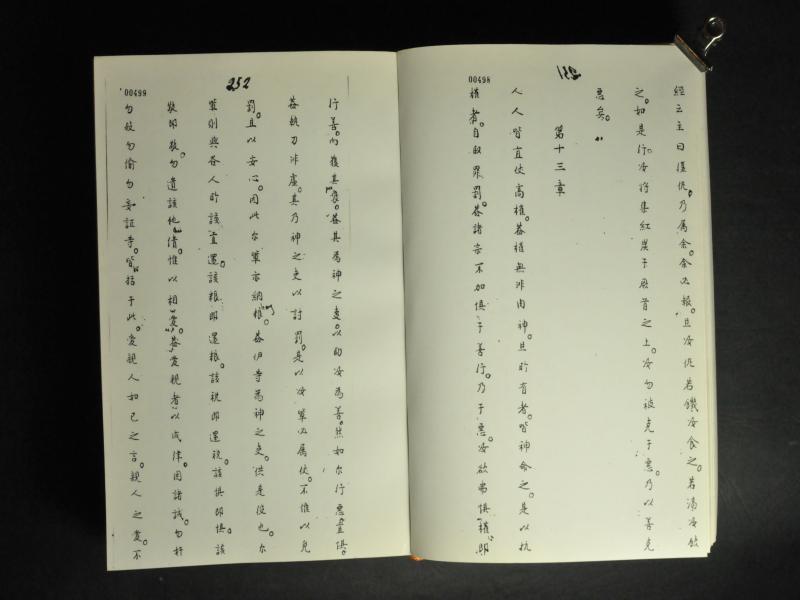 00498
251
經云主曰復仇乃属余余必报且汝仇若饑汝食之若渴汝飲
之如是行汝将集紅炭于厥首之上汝勿被克于惡乃以善克
惡矣
第十三章
人人皆宜使高權蓋權無非由神且所有者皆神命之是以抗
權者自取眾罰蓋諸宰不加懼于善行乃于惡汝欲弗懼權即
00499
252
行善而獲其蓋其為神之吏以助汝為善然如尔行惡宜懼
蓋執刀非虛其乃神之吏以討罰是以汝輩必属伏不惟以免
罰且以安心因此尔輩亦納權蓋伊等為神之吏供是役也尔
輩則與各人所該宜還該粮即還粮該税即還税該懼即懼該
敬即敬勿遺該他情惟以相愛蓋愛親者以成律因諸誡勿奸
勿殺勿偷勿妄証等皆括于此愛親人如己之言親人之愛不